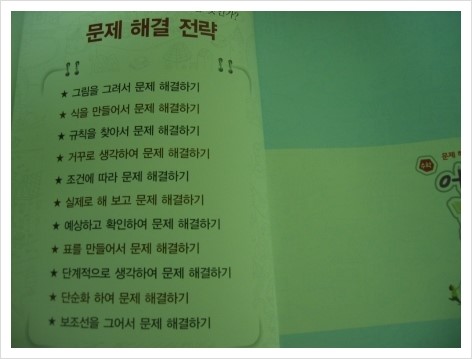 문제 해결 전략
★ 그림을 그려서 문제 해결하기
★ 식을 만들어서 문제 해결하기
★ 규칙을 찾아서 문제 해결하기
★ 거꾸로 생각하여 문제 해결하기
★ 조건에 따라 문제 해결하기
★ 실제로 해 보고 문제 해결하기
★ 예상하고 확인하여 문제 해결하기
★ 표를 만들어서 문제 해결하기
★ 단계적으로 생각하여 문제 해결하기
★ 단순화 하여 문제 해결하기
★ 보조선을 그어서 문제 해결하기
수학
문제